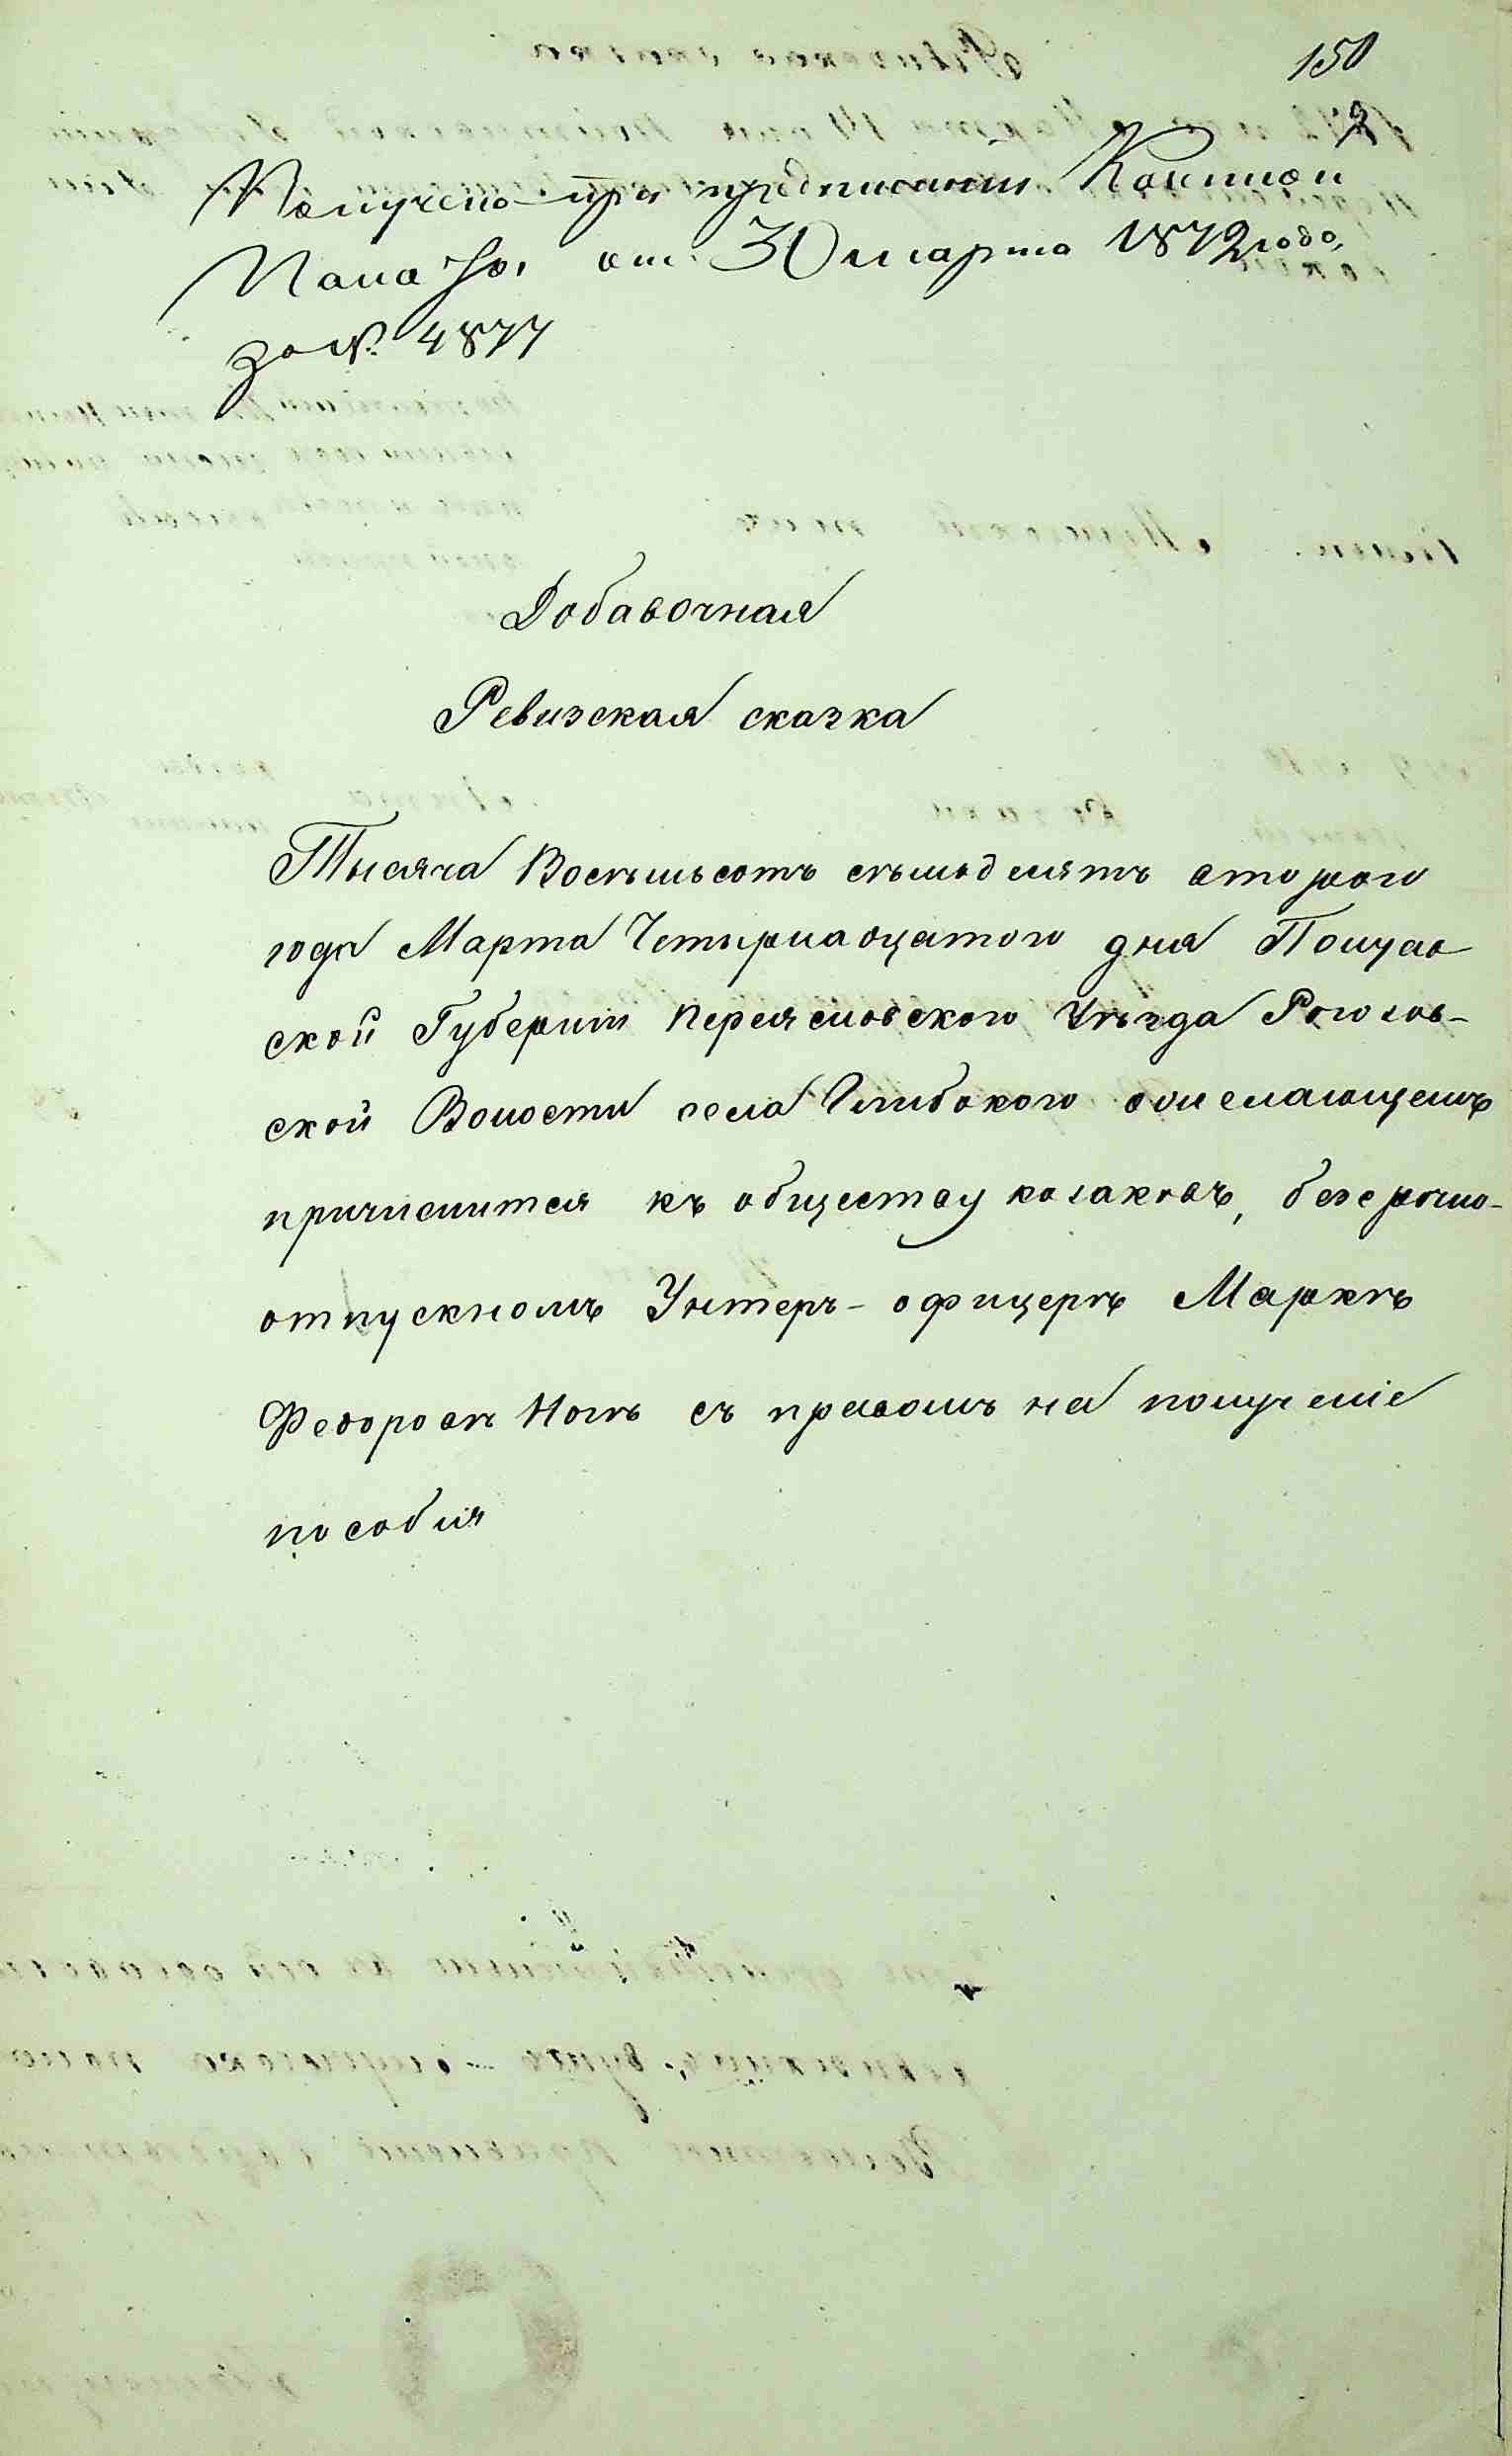 150
Получено при предписании Казенной
Палаты, от 30 марта 1872 года,
за №. 4877
Добавочная
Ревизская сказка
Тысяча Восѣмьсотъ сѣмьдесятъ второго
года Марта Четырнадцатого дня Полтав
ской Губерніи Переясловского Уѣзда Рогозов-
ской Волости села Глибокого о желающемъ
причислится къ обществу козаковъ, безсрочно-
отпускномъ Унтеръ-офицерѣ Маркѣ
Федоровѣ Ногѣ съ правомъ на полученіе
пособия